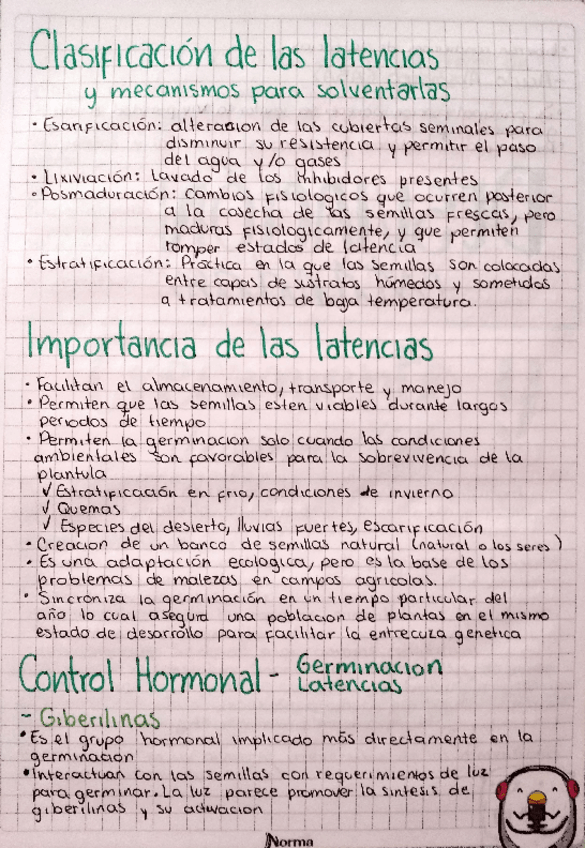 Clasificación de las latencias
y mecanismos para solventarlas
· Esarificación: alteración de las cubiertas seminales para
disminuir su resistencia y permitir el paso
del agua y/o gases
· Lixiviación: lavado de los inhibidores presentes
· Posmaduración: Cambios fisiologicos que ocurren posterior
a la cosecha de las semillas frescas, pero
maduras fisiologicamente, y que permiten
romper estados de latencia
· Estratificación: Práctica en la que las semillas son colocadas
entre capas de sustratos húmedos y sometidos
a tratamientos de baja temperatura.
Importancia de las latencias
· Facilitan el almacenamiento, transporte y manejo
· Permiten que las semillas esten viables durante largos
periodos de tiempo
· Permiten la germinacion solo cuando las condiciones
ambientales son favorables para la sobrevivencia de la
plantula
✓ Estratificación en frio, condiciones de invierno
✓ Quemas
✓ Especies del desierto, lluvias fuertes, escarificación
· Creacion de un banco de semillas natural (natural o los seres)
· Es una adaptación ecologica, pero es la base de los
problemas de malezas en campos agricolas.
· Sincroniza la germinación en un tiempo particular del
año lo cual asegura una poblacion de plantas en el mismo
estado de desarrollo para facilitar la entrecuza genetica
Control Hormonal - Germinacion
Latencias
- Giberilinas
· Es el grupo hormonal implicado más directamente en la
germinacion
· Interactuan con las semillas con requerimientos de luz
para germinar. La luz parece promover la sintesis de
giberilinas y su activacion
Norma